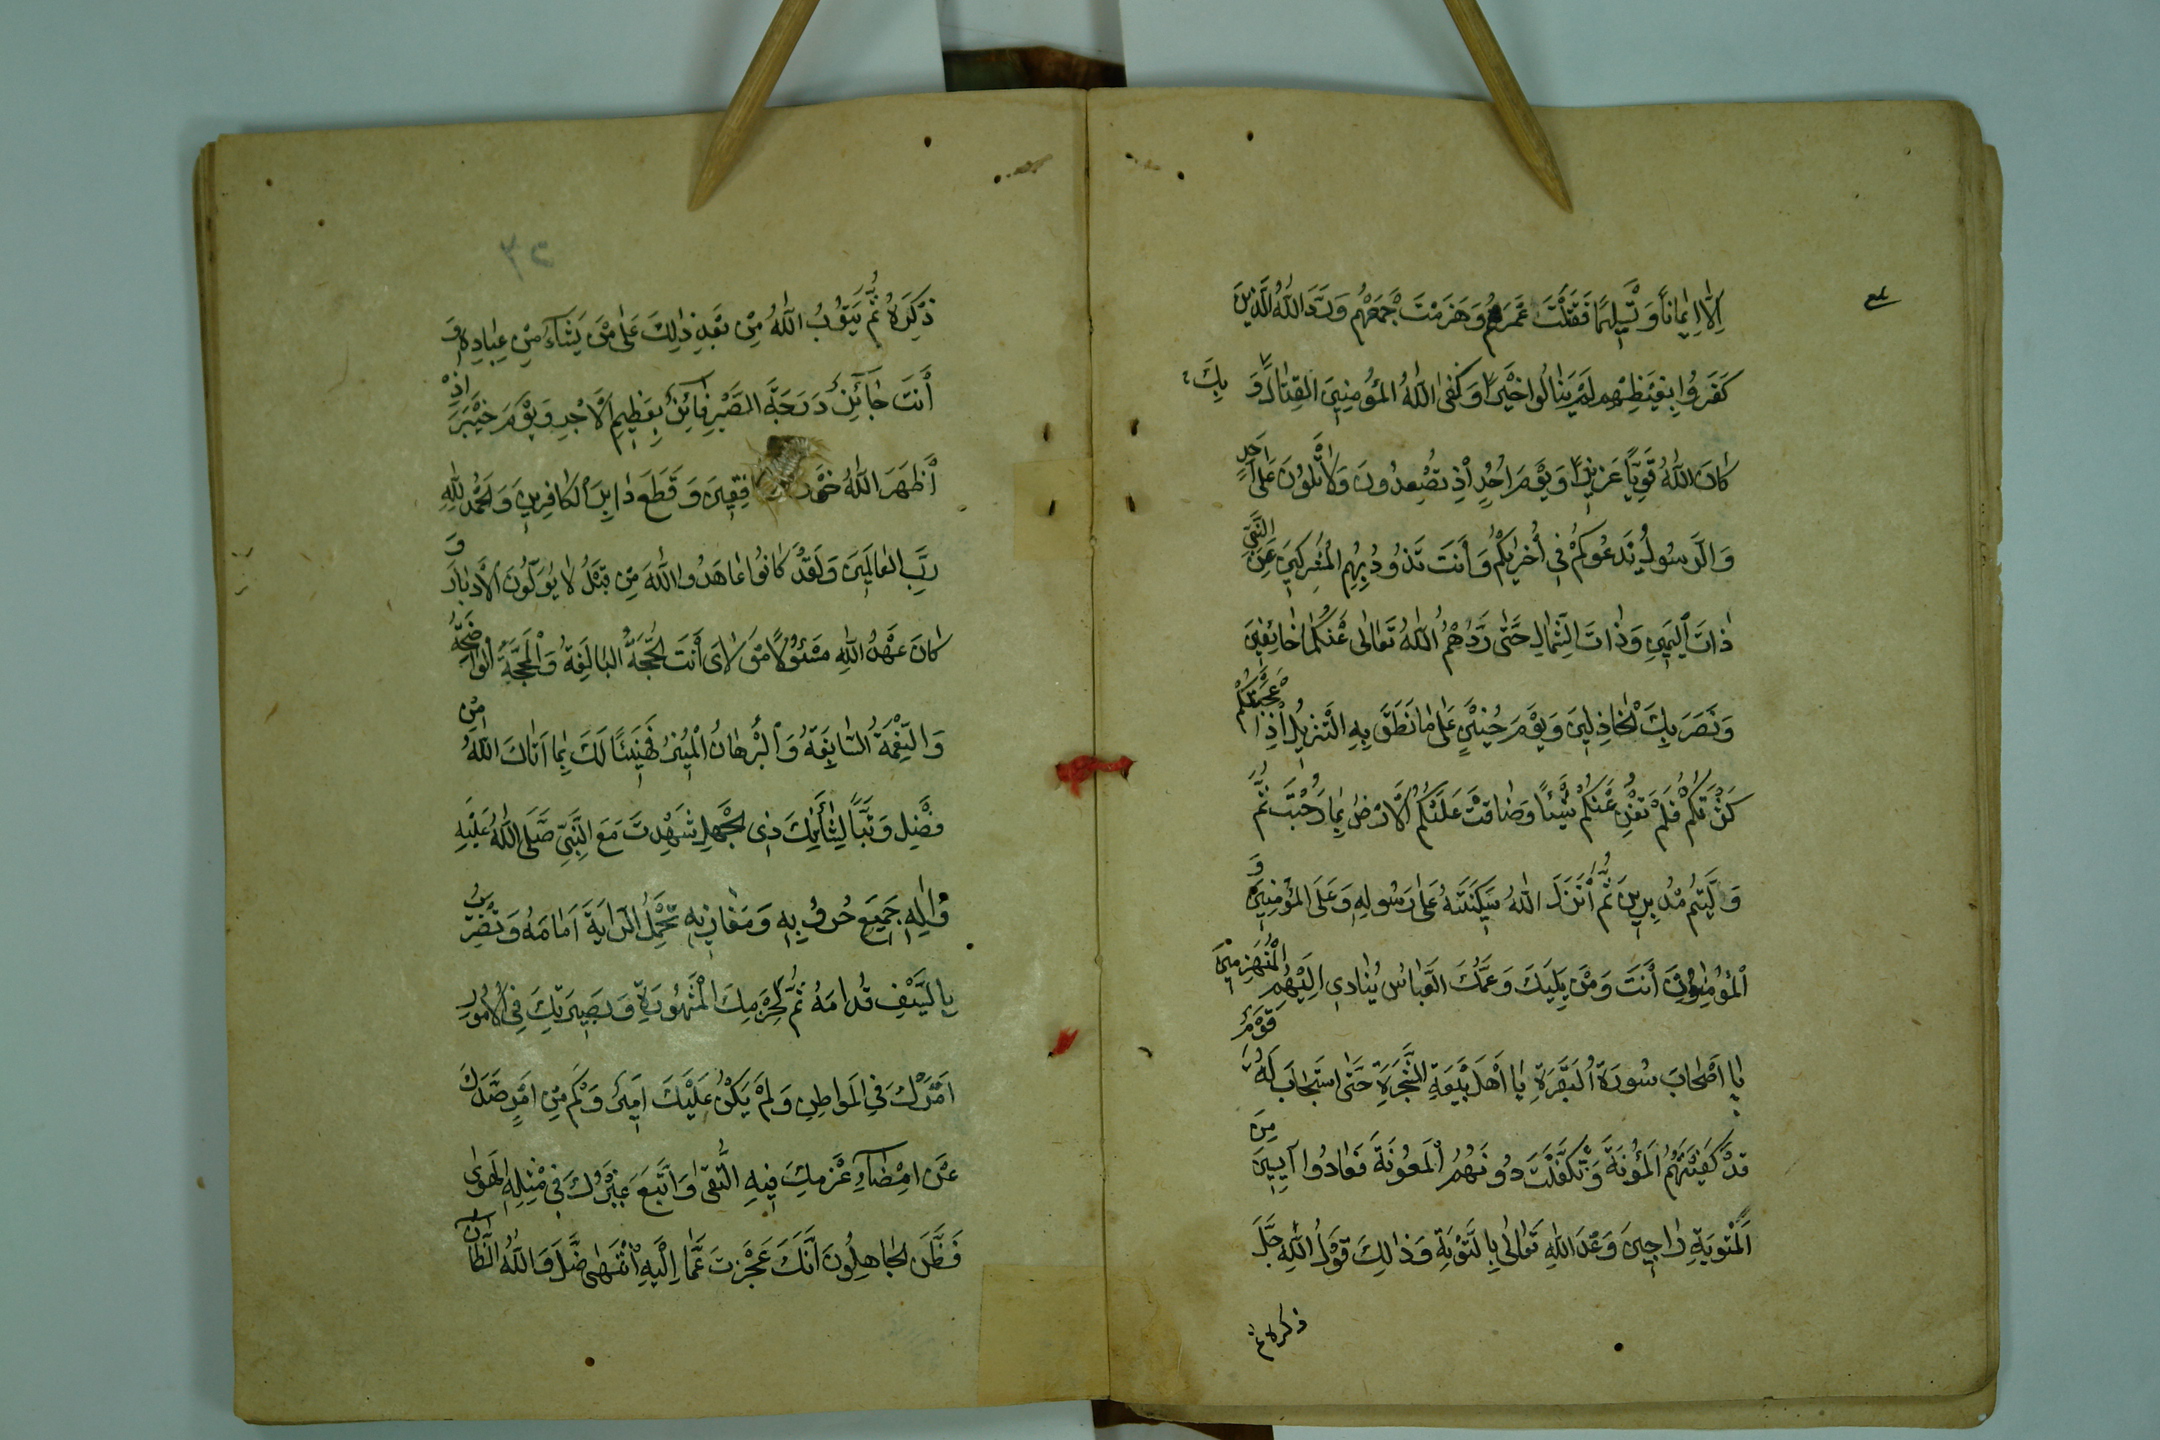 اِلّٰا اِيمٰاناً وَ تَسْلِيمًا فَقَتَلْتَ عَمْرَهُمْ وَ هَزَمْتَ جَمْعَهُمْ وَ رَدَّ اللّٰهُ الَّذِينَ
كَفَرُوا بِغَيْظِهِمْ لَمْ يَنٰالُوا خَيْراً وَ كَفَى اللّٰهُ الْمُؤْمِنِينَ الْقِتٰالَ بِكَ وَ
كٰانَ اللّٰهُ قَوِيّاً عَزِيزاً وَ يَوْمَ اُحُدٍ اِذْ تُصْعِدُونَ وَ لٰا تَلْوُونَ عَلٰى اَحَدٍ
وَ الرَّسُولُ يَدْعُوكُمْ فِي أُخْرٰيكُمْ وَ أَنْتَ تَذُودُ بِهِمُ الْمُشْرِكِينَ عَنِ النَّبِيِّ
ذٰاتَ الْيَمِينِ وَ ذٰاتَ الشِّمٰالِ حَتّٰى رَدَّهُمُ اللّٰهُ تَعٰالٰى عَنْكُمٰا خٰائِفِينَ
وَ نَصَرَ بِكَ الْخٰاذِلِينَ وَ يَوْمَ حُنَيْنٍ عَلٰى مٰا نَطَقَ بِهِ التَّنْزِيلُ اِذْ اَعْجَبَتْكُمْ
كَثْرَتُكُمْ فَلَمْ تُغْنِ عَنْكُمْ شَيْئاً وَ ضٰاقَتْ عَلَيْكُمُ الْاَرْضُ بِمٰا رَحُبَتْ ثُمَّ
وَلَّيْتُمْ مُدْبِرِينَ ثُمَّ أَنْزَلَ اللّٰهُ سَكِينَتَهُ عَلٰى رَسُولِهِ وَ عَلَى الْمُؤْمِنِينَ وَ
الْمُؤْمِنُونَ أَنْتَ وَ مَنْ يَلِيكَ وَ عَمُّكَ الْعَبّٰاسُ يُنٰادِي الْمُنْهَزِمِينَ
يٰا اَصْحٰابَ سُورَةِ الْبَقَرَةِ يٰا اَهْلَ بَيْعَةِ الشَّجَرَةِ حَتّٰى اسْتَجٰابَ لَهُ قَوْمٌ
قَدْ كَفَيْتَهُمُ الْمَؤُنَةَ وَ تَكَفَّلْتَ دُونَهُمُ الْمَعُونَةَ فَعٰادُوا آيِسِينَ مِنَ
الْمَثُوبَةِ رٰاجِينَ وَعْدَ اللّٰهِ تَعٰالٰى بِالتَّوْبَةِ وَ ذٰلِكَ قَوْلُ اللّٰهِ جَلَّ
ذكره ثم
ذِكْرُهُ ثُمَّ يَتُوبُ اللّٰهُ مِنْ بَعْدِ ذٰلِكَ عَلٰى مَنْ يَشٰاءُ مِنْ عِبٰادِهِ وَ
أَنْتَ حٰائِزٌ دَرَجَةَ الصَّبْرِ فٰائِزٌ بِعَظِيمِ الْاَجْرِ وَ يَوْمَ خَيْبَرَ اِذْ
أَظْهَرَ اللّٰهُ فِقِينَ وَ قَطَعَ دٰابِرَ الْكٰافِرِينَ وَ الْحَمْدُ لِلّٰهِ
رَبِّ الْعٰالَمِينَ وَ لَقَدْ كٰانُوا عٰاهَدُوا اللّٰهَ مِنْ قَبْلُ لٰا يُوَلُّونَ الْأَدْبٰارَ وَ
كٰانَ عَهْدُ اللّٰهِ مَسْئُولًا مَوْلٰايَ أَنْتَ الْحُجَّةُ الْبٰالِغَةُ وَ الْمَحَجَّةُ الْوٰاضِحَةُ
وَ النِّعْمَةُ السّٰابِغَةُ وَ الْبُرْهٰانُ الْمُنِيرُ فَهَنِيئًا لَكَ بِمٰا آتٰاكَ اللّٰهُ مِنْ
فَضْلٍ وَ تَبّاً لِشٰانِئِكَ ذِي الْجَهْلِ شَهِدْتَ مَعَ النَّبِيِّ صَلَّى اللّٰهُ عَلَيْهِ
وَ اٰلِهِ جَمِيعَ حُرُوبِهِ وَ مَغٰازِيهِ تَحْمِلُ الرّٰايَةَ اَمٰامَهُ وَ تَضْرِبُ
بِالسَّيْفِ قُدّٰامَهُ ثُمَّ لِحَزْمِكَ الْمَشْهُورَةِ وَ بَصِيرَتِكَ فِي الْاُمُورِ
اَمَّرَكَ فِي الْمَوٰاطِنِ وَ لَمْ يَكُنْ عَلَيْكَ اَمِيرٌ وَ كَمْ مِنْ اَمْرٍ صَدَّكَ
عَنْ اِمْضٰاءِ عَزْمِكَ فِيهِ التُّقٰى وَ اتَّبَعَ غَيْرُكَ فِي مِثْلِهِ الْهَوٰى
فَظَنَّ الْجٰاهِلُونَ اَنَّكَ عَجَزْتَ عَمّٰا اِلَيْهِ انْتَهٰى ضَلَّ وَ اللّٰهِ الظّٰانُّ